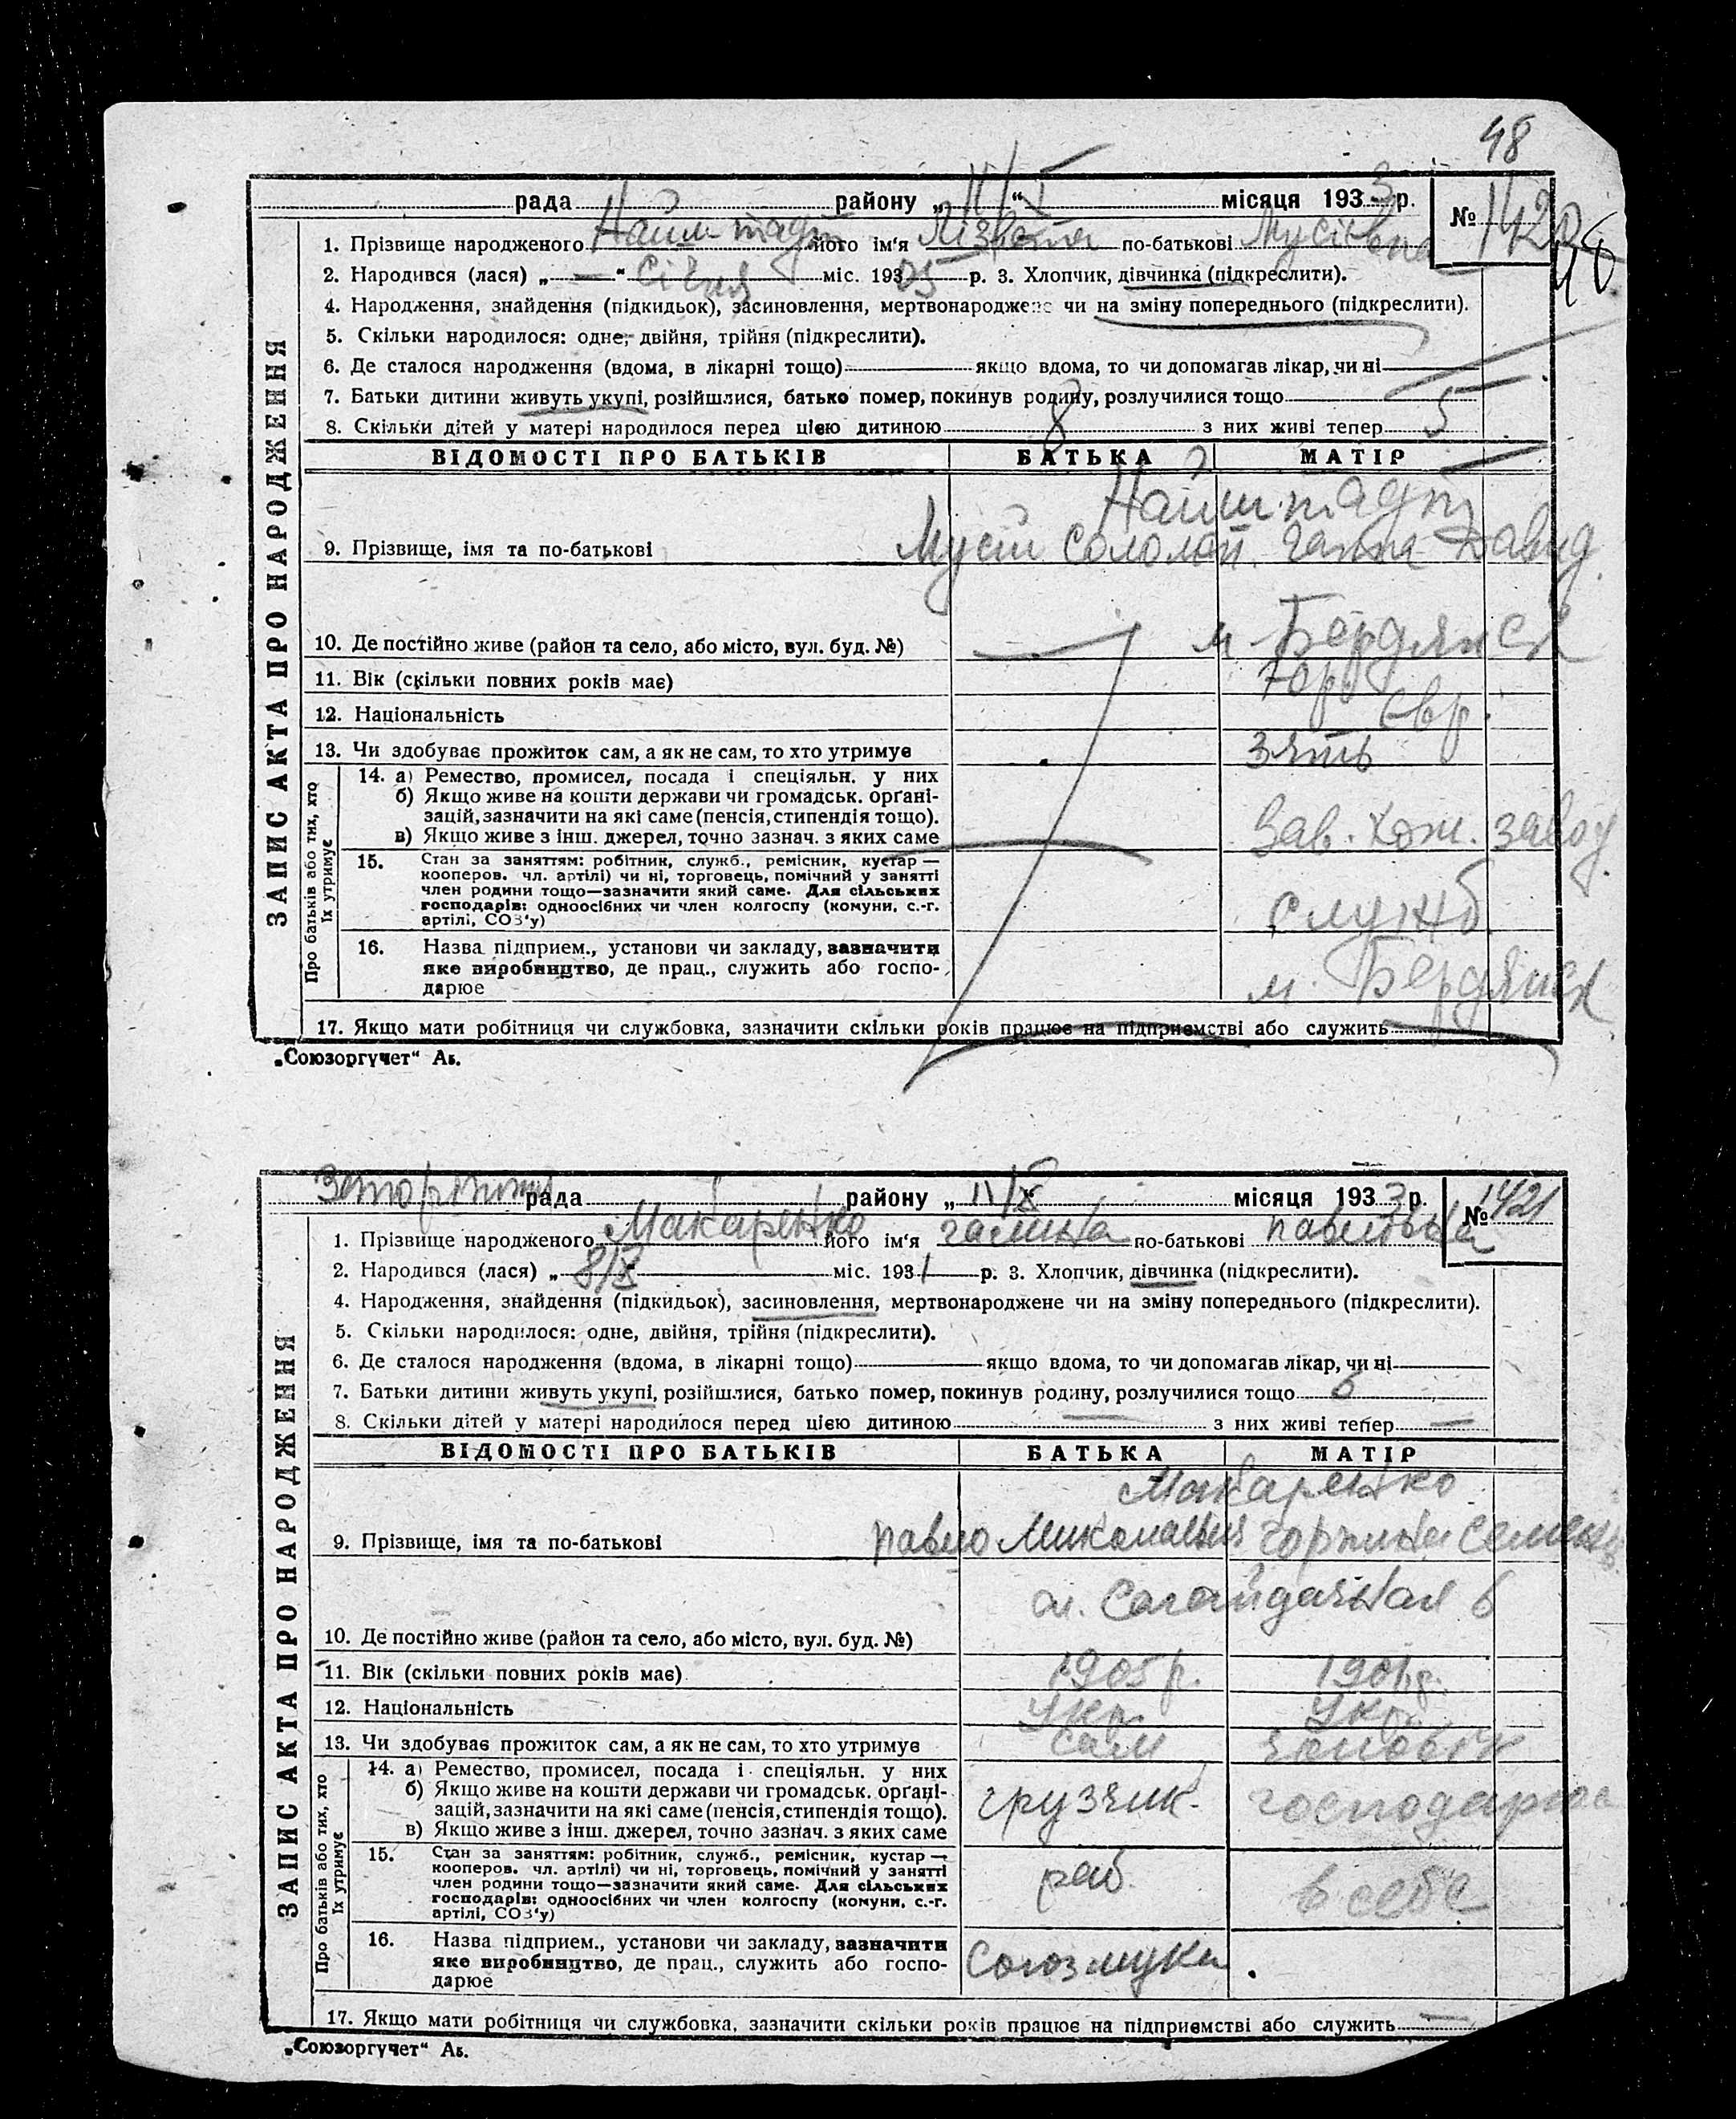 48
рада района „11/X“ місяця 1933 р. № 1420
48
1. Прізвище народженого Найштадт його ім'я Лізвета по-батькові Мусієвна
2. Народився (лася) „ — “ Січня міс. 1905 р. 3. Хлопчик, дівчинка (підкреслити).
4. Народження, знайдення (підкидьок), засиновлення, мертвонароджене чи на зміну попереднього (підкреслити).
5. Скільки народилося: одне, двійня, трійня (підкреслити).
6. Де сталося народження (вдома, в лікарні тощо) якщо вдома, то чи допомагав лікар, чи ні
7. Батьки дитини живуть укупі, розійшлися, батько помер, покинув родину, розлучилися тощо
8. Скільки дітей у матері народилося перед цією дитиною 8 з них живі тепер 5
ВІДОМОСТІ ПРО БАТЬКІВ БАТЬКА МАТІР
Найштадт
9. Прізвище, імя та по-батькові Мусій Соломон. Ганна Давид.
10. Де постійно живе (район та село, або місто, вул. буд. №) — м. Бердянск
11. Вік (скільки повних років має) 70р
12. Національність Євр.
13. Чи здобуває прожиток сам, а як не сам, то хто утримує зять
ЗАПИС АКТА ПРО НАРОДЖЕННЯ
Про батьків або тих, хто їх утримує
14. а) Ремество, промисел, посада і спеціяльн. у них
б) Якщо живе на кошти держави чи громадськ. орґані-
зацій, зазначити на які саме (пенсія, стипендія тощо).
в) Якщо живе з інш. джерел, точно зазнач. з яких саме
Зав. кож. завод.
15. Стан за заняттям: робітник, служб., ремісник, кустар —
кооперов. чл. артілі) чи ні, торговець, помічний у занятті
член родини тощо—зазначити який саме. Для сільських
господарів: одноосібних чи член колгоспу (комуни, с.-г.
артілі, СОЗ'у)
служб.
16. Назва підприєм., установи чи закладу, зазначити
яке виробництво, де прац., служить або госпо-
дарює
м. Бердянск
17. Якщо мати робітниця чи службовка, зазначити скільки років працює на підприємстві або служить
„Союзоргучет“ Аб.
рада району „ 11/X місяця 1933 р. № 1421
1. Прізвище народженого Макаренко його ім'я Галина по-батькові Павловна
2. Народився (лася) „ 8/X міс. 1931 р. 3. Хлопчик, дівчинка (підкреслити).
4. Народження, знайдення (підкидьок), засиновлення, мертвонароджене чи на зміну попереднього (підкреслити).
5. Скільки народилося: одне, двійня, трійня (підкреслити).
6. Де сталося народження (вдома, в лікарні тощо) якщо вдома, то чи допомагав лікар, чи ні
7. Батьки дитини живуть укупі, розійшлися, батько помер, покинув родину, розлучилися тощо
8. Скільки дітей у матері народилося перед цією дитиною — з них живі тепер —
ВІДОМОСТІ ПРО БАТЬКІВ БАТЬКА МАТІР
Макаренко
9. Прізвище, імя та по-батькові Павло Миколаевич Горпина Семен
Сагайдачная 6
10. Де постійно живе (район та село, або місто, вул. буд. №)
11. Вік (скільки повних років має) 1905р. 1901р.
12. Національність Укр. Укр.
13. Чи здобуває прожиток сам, а як не сам, то хто утримує сам чоловік
ЗАПИС АКТА ПРО НАРОДЖЕННЯ
Про батьків або тих, хто їх утримує
14. а) Ремество, промисел, посада і спеціяльн. у них
б) Якщо живе на кошти держави чи громадськ. орґані-
зацій, зазначити на які саме (пенсія, стипендія тощо).
в) Якщо живе з інш. джерел, точно зазнач. з яких саме
грузчик господарює
15. Стан за заняттям: робітник, служб., ремісник, кустар —
кооперов. чл. артілі) чи ні, торговець, помічний у занятті
член родини тощо—зазначити який саме. Для сільських
господарів: одноосібних чи член колгоспу (комуни, с.-г.
артілі, СОЗ'у)
раб. в себе
16. Назва підприєм., установи чи закладу, зазначити
яке виробництво, де прац., служить або госпо-
дарює
Союзмука
17. Якщо мати робітниця чи службовка, зазначити скільки років працює на підприємстві або служить —
„Союзоргучет“ Аб.